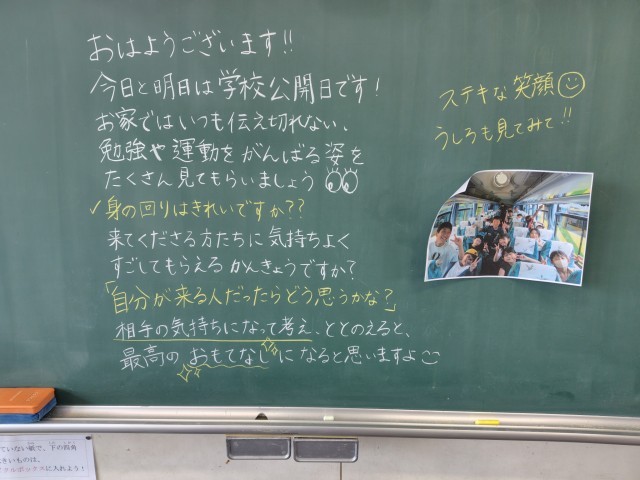 おはようございます!!
今日と明日は学校公開日です!
お家ではいつも伝え切れない、
勉強や運動をがんばる姿を
たくさん見てもらいましょう
✓身の回りはきれいですか??
来てくださる方たちに気持ちよく
すごしてもらえるかんきょうですか?
「自分が来る人だったらどう思うかな?」
相手の気持ちになって考え、ととのえると、
最高のおもてなしになると思いますよ
ステキな笑顔
うしろも見てみて!!
ていない紙で、下の四角
きいものは、
クルボックスに入れよう!